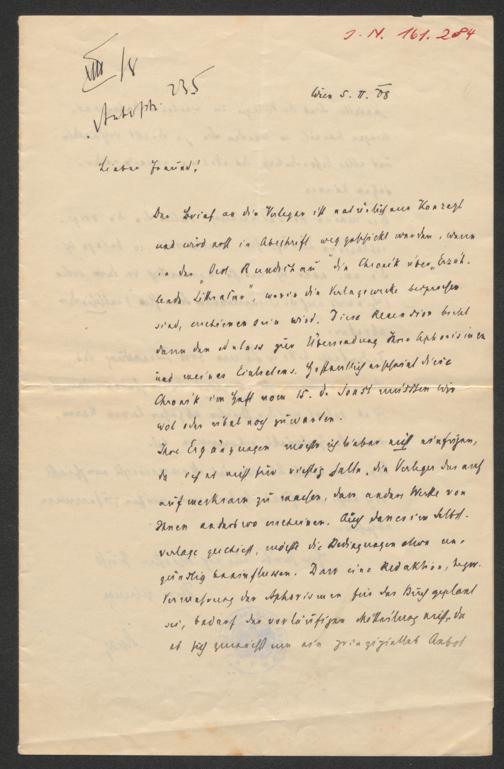 J. N. 161.284
XIII/8
235
Wien 5. II. 08
Lieber Freund!
Der Brief an die Verleger ist natürlich nur Konzept
und wird erst in Abschrift weggeschickt werden, wenn
in der „Oest. Rundschau" die Chronik über „Erzäh-
lende Litteratur", worin die Verlagswerke besprochen
sind, erschienen sein wird. Diese Recension bietet
dann den Anlass zur Übersendung Ihrer Aphorismen
und meines Hoffentlich erscheint diese
Chronik im Heft vom 15. d. Sonst müssten wir
wol oder übel noch zuwarten.
Ihre Ergänzungen möchte ich lieber nicht einfügen,
da ich es nicht für richtig halte, die Verleger darauf
aufmerksam zu machen, dass andere Werke von
Ihnen anderswo erscheinen. Auch dass es im Selbst-
verlage geschieht, möchte die Bedingungen etwa un-
günstig beeinflussen. Dass eine Redaktion, bezw.
Vermehrung der Aphorismen für das Buch geplant
sei, bedarf der vorläufigen Mitteilung nicht, da
es sich zunächst um ein prinzipielles Anbot